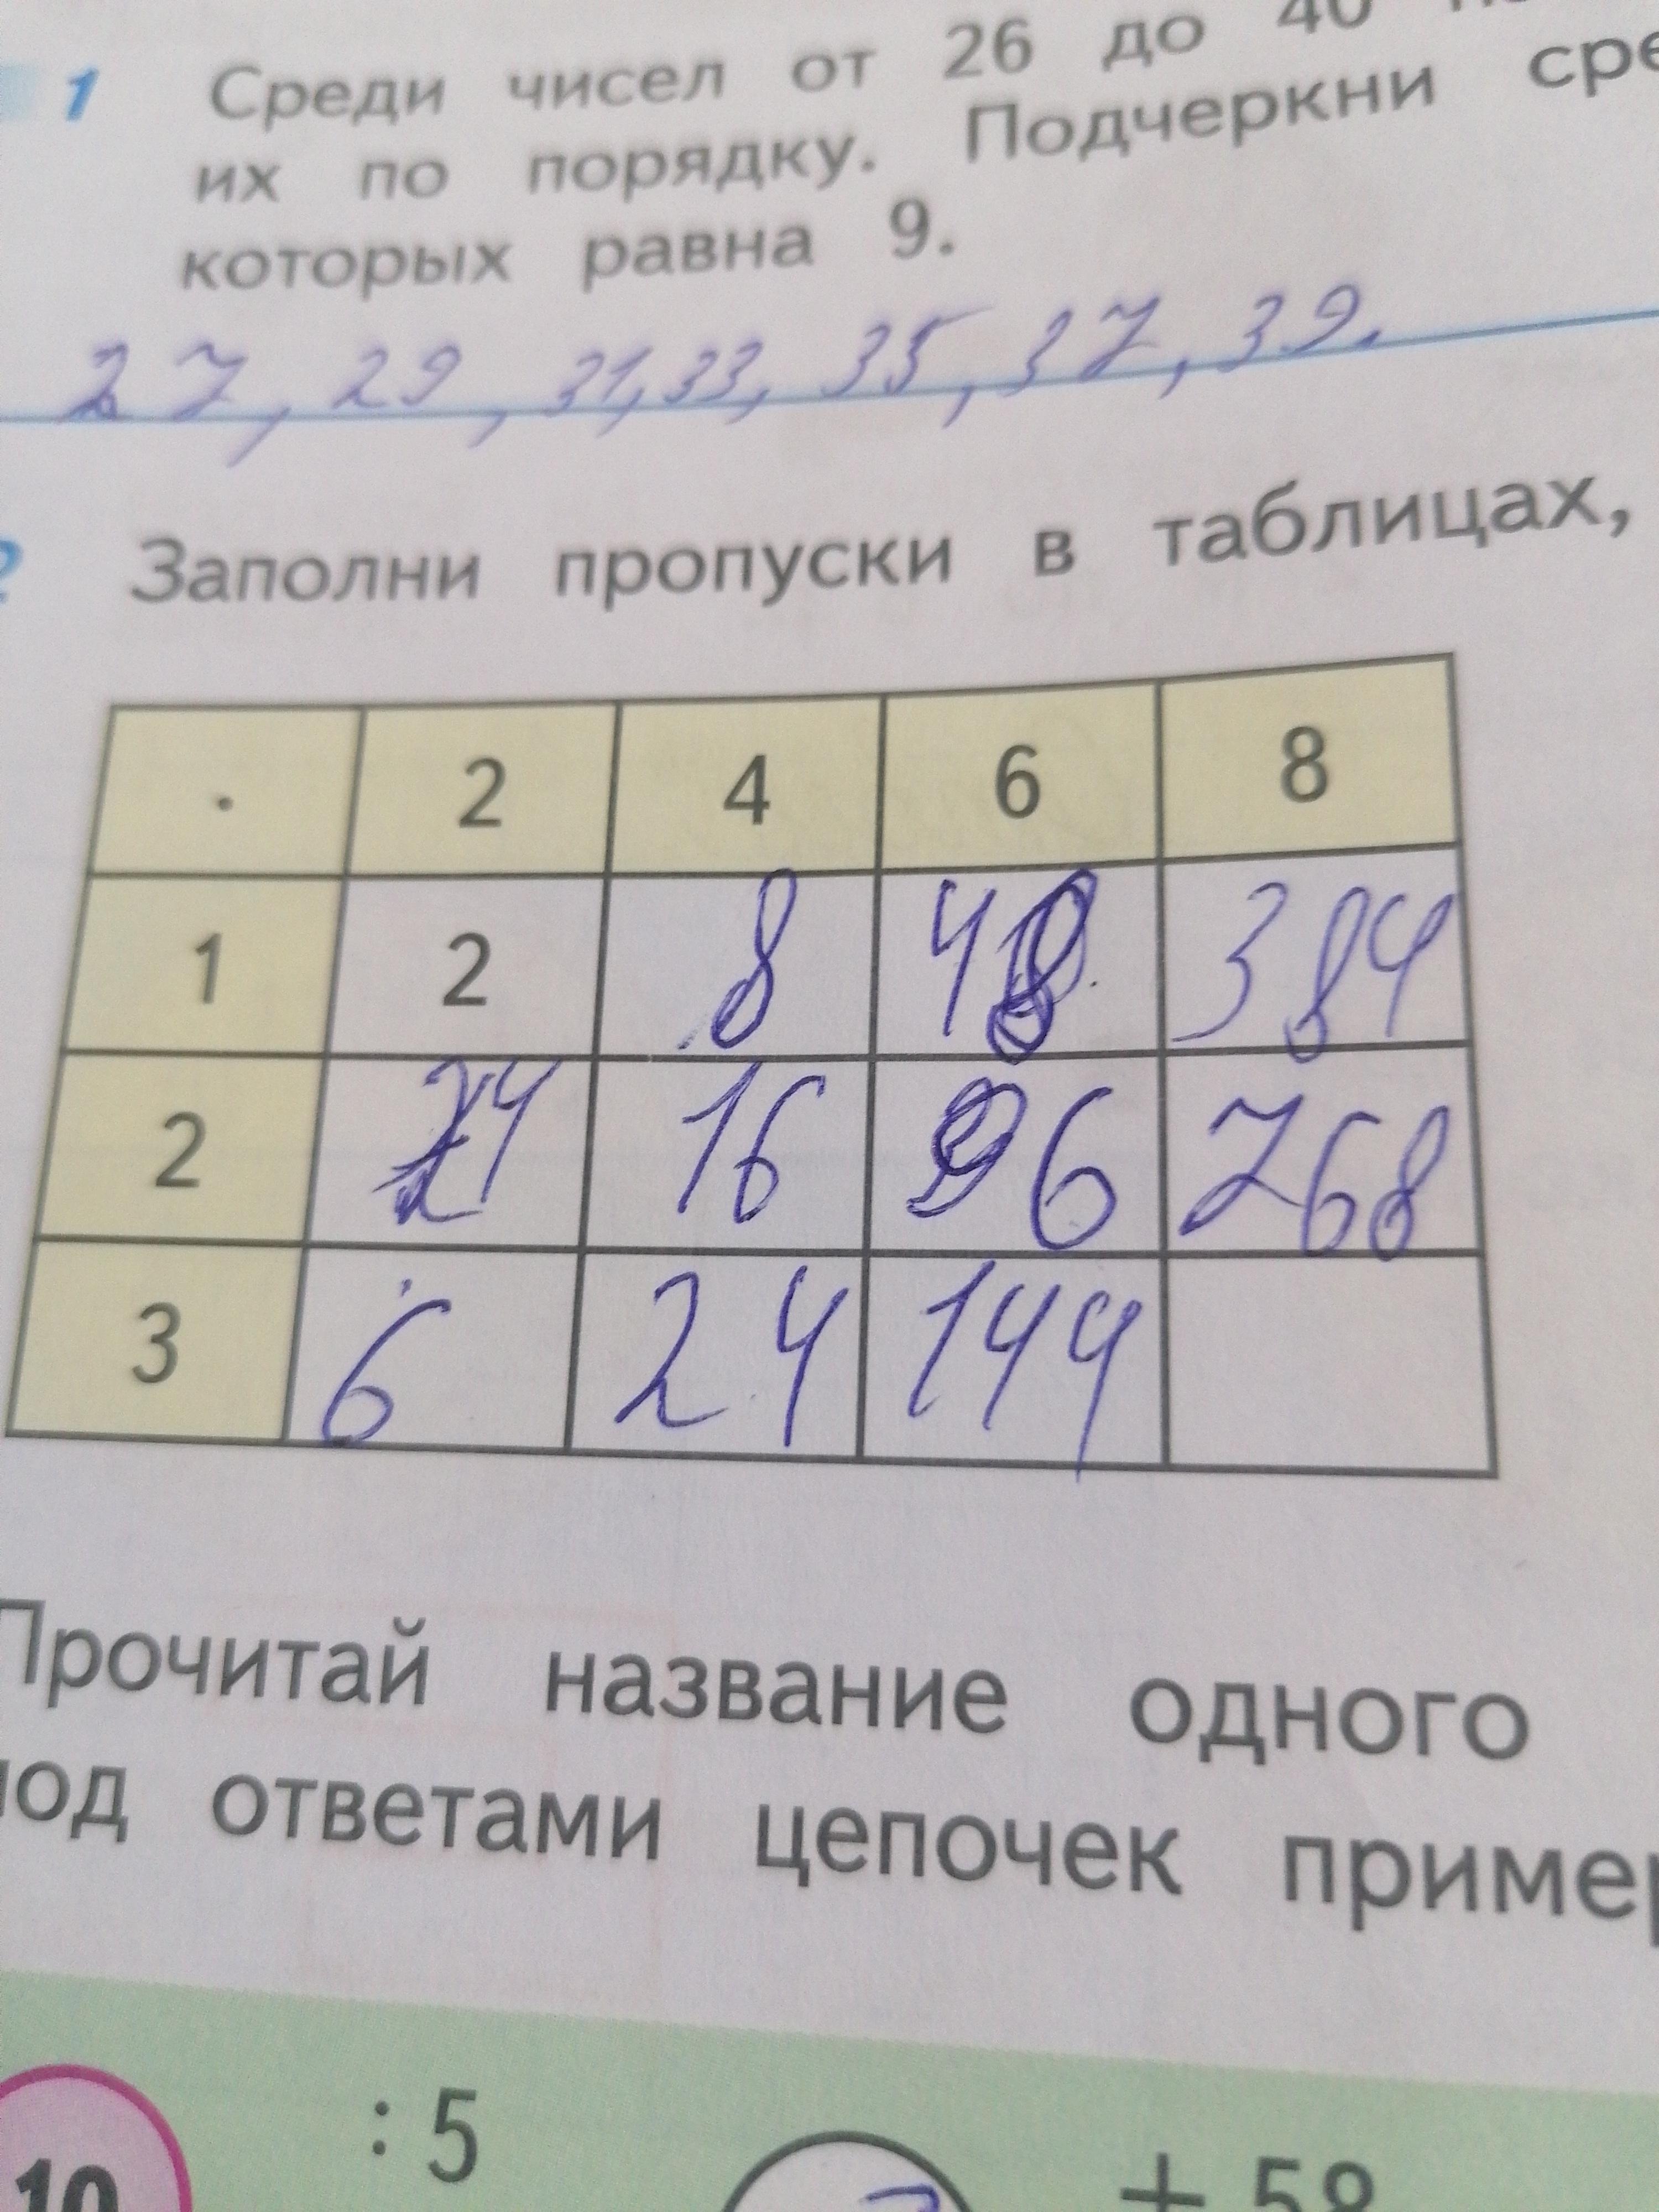 1 Среди чисел от 26 до 40
их по порядку. Подчеркни
которых равна 9.
27, 29, 31, 33, 35, 37, 39.
2 Заполни пропуски в таблицах,
· 2 4 6 8
1 2 8 48 384
2 24 16 96 768
3 6 24 144
Прочитай название одного
под ответами цепочек
10 : 5 + 58